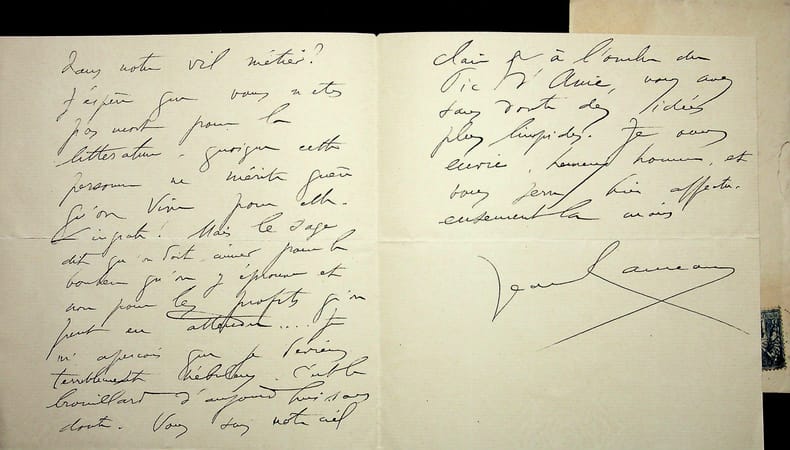 dans notre vil métier?
J'espère que vous n'êtes
pas mort pour la
littérature, quoique cette
personne ne mérite guère
qu'on vive pour elle.
L'ingrate! Mais le sage
dit qu'on doit aimer pour le
bonheur qu'on y éprouve et
non pour les profits qu'on
peut en attendre.... Je
m'aperçois que je deviens
terriblement nébuleux. C'est le
brouillard d'aujourd'hui sans
doute. Vous, sous notre ciel
clair et à l'ombre du
Pic d'Anie, vous avez
sans doute des idées
plus limpides. Je vous
envie, heureux homme, et
vous serre bien affectu-
eusement la main
Jean Rameau